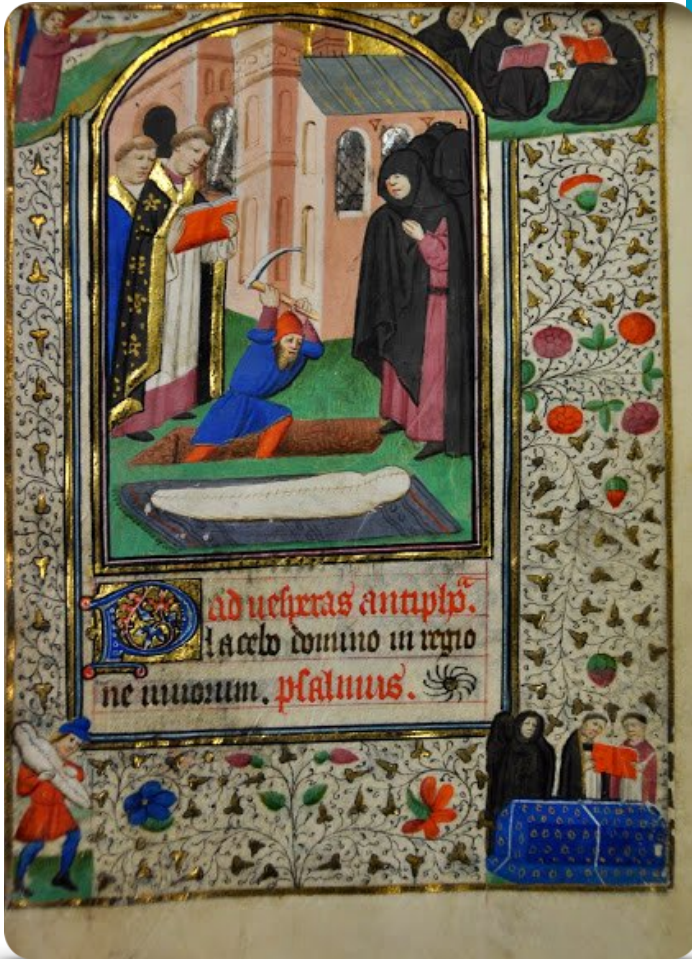 ad uesperas antiph̄ᵃ.
Placebo domino in regio
ne uiuorum. psalmus.